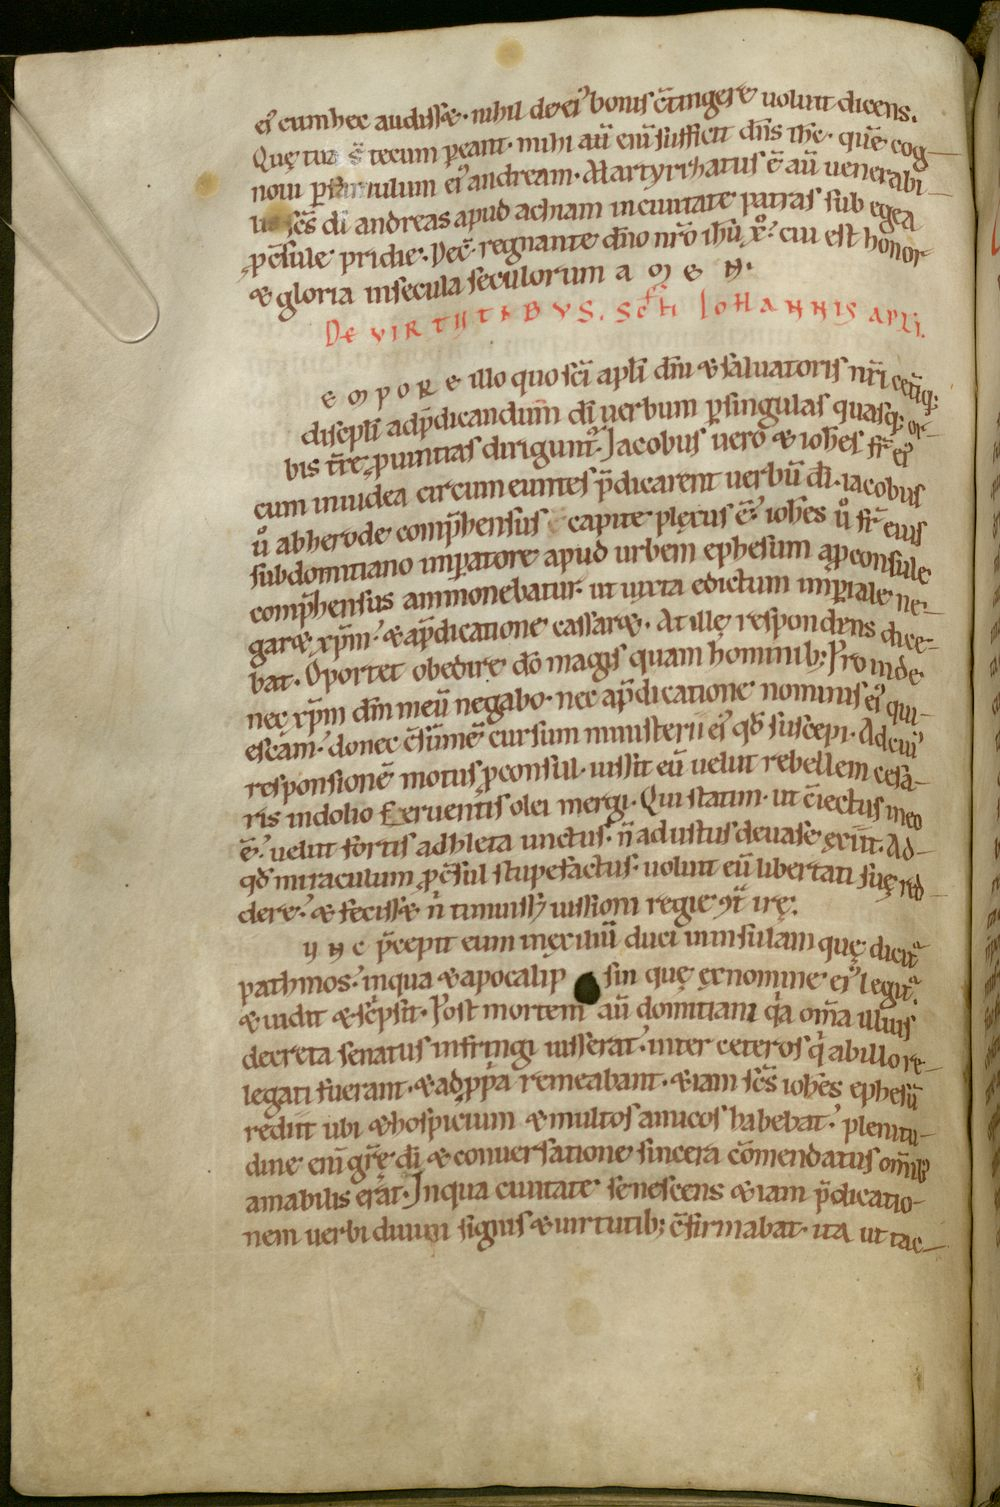 ei᾽ cum hec audisset· nihil de ei᾽ bonis c̄tingere uoluit dicens.
Quę tua s̄ tecum ꝑeant· mihi aū eni᷎ sufficit dn̄s ihc̄· quē cog-
noui ꝑ famulum ei᾽ andream· Martyrizatus ē aū uenerabi-
lis sc̄s dī andreas apud achiam in ciuitate patras sub egea
ꝓc̄sule pridie· Dec̄· regnante dn̄o nr̄o ihū xp̄o cui est honor
& gloria in secula seculorum a m e n·
De VIRTUTIBVS. Sc̄i IOHANNIS apl̄i.
e m p o r e illo quo sc̄i apl̄i dn̄i & saluatoris nr̄i ceti᷎q;
discipl̄i ad p̄dicandum dī uerbum ꝑ singulas quasq; or-
bis tr̄rę ꝓuintias dirigunt᷑· Iacobus uero & ioh̄es fr̄ ei᾽
cum in iudea circumeuntes p̄dicarent uerbū dī· iacobus
uͦ ab herode comp̄hensus capite plęxus ē· ioh̄es uͦ fr̄ eius
sub domitiano imꝑatore apud urbem ephesum a ꝓconsule
comp̄hensus ammonebatur· ut iuxta edictum imꝑiale ne-
garet xp̄m· & a p̄dicatione cassaret· At ille respondens dice-
bat· Oportet obedire dō magis quam hominib; Proinde
nec xp̄m dn̄m meū negabo· nec a p̄dicatione nominis ei᾽ qui-
escam· donec c̄sūmē cursum ministerii ei᾽ qd̄ suscepi· Ad cui᾽
responsionē motus ꝓconsul· iussit eū uelut rebellem cesa-
ris in dolio feruentis olei mergi· Qui statim· ut c̄iectus in eo
ē· uelut fortis adhleta unctus· n̄ adustus de uase exiit· Ad-
qd̄ miraculum ꝓc̄sul stupefactus· uoluit eū libertati suę red-
dere· & fecisset n̄ timuiss& iussioni regie ꝯtᷓire·
u n c p̄cepit eum in exiliū duci in insulam quę dicit᷑
pathmos· in qua & apocalip sin quę ex nomine ei᾽ legit᷑
& uidit & sc̄psit· Post mortem aū domitiani qͥa om̄a illius
decreta senatus infringi iusserat· inter ceteros qͥ ab illo re-
legati fuerant· & ad ꝓp̄a remeabant· & iam sc̄s ioh̄es ephesū
rediit ubi & hospicium & multos amicos habebat· plenitu-
dine eni᷎ gr̄ę dī & conuersatione sincera cōmendatus om̄ib᾽
amabilis erat· In qua ciuitate senescens & iam p̄dicatio-
nem uerbi diuini signis & uirtutib; c̄firmabat· ita ut tac-